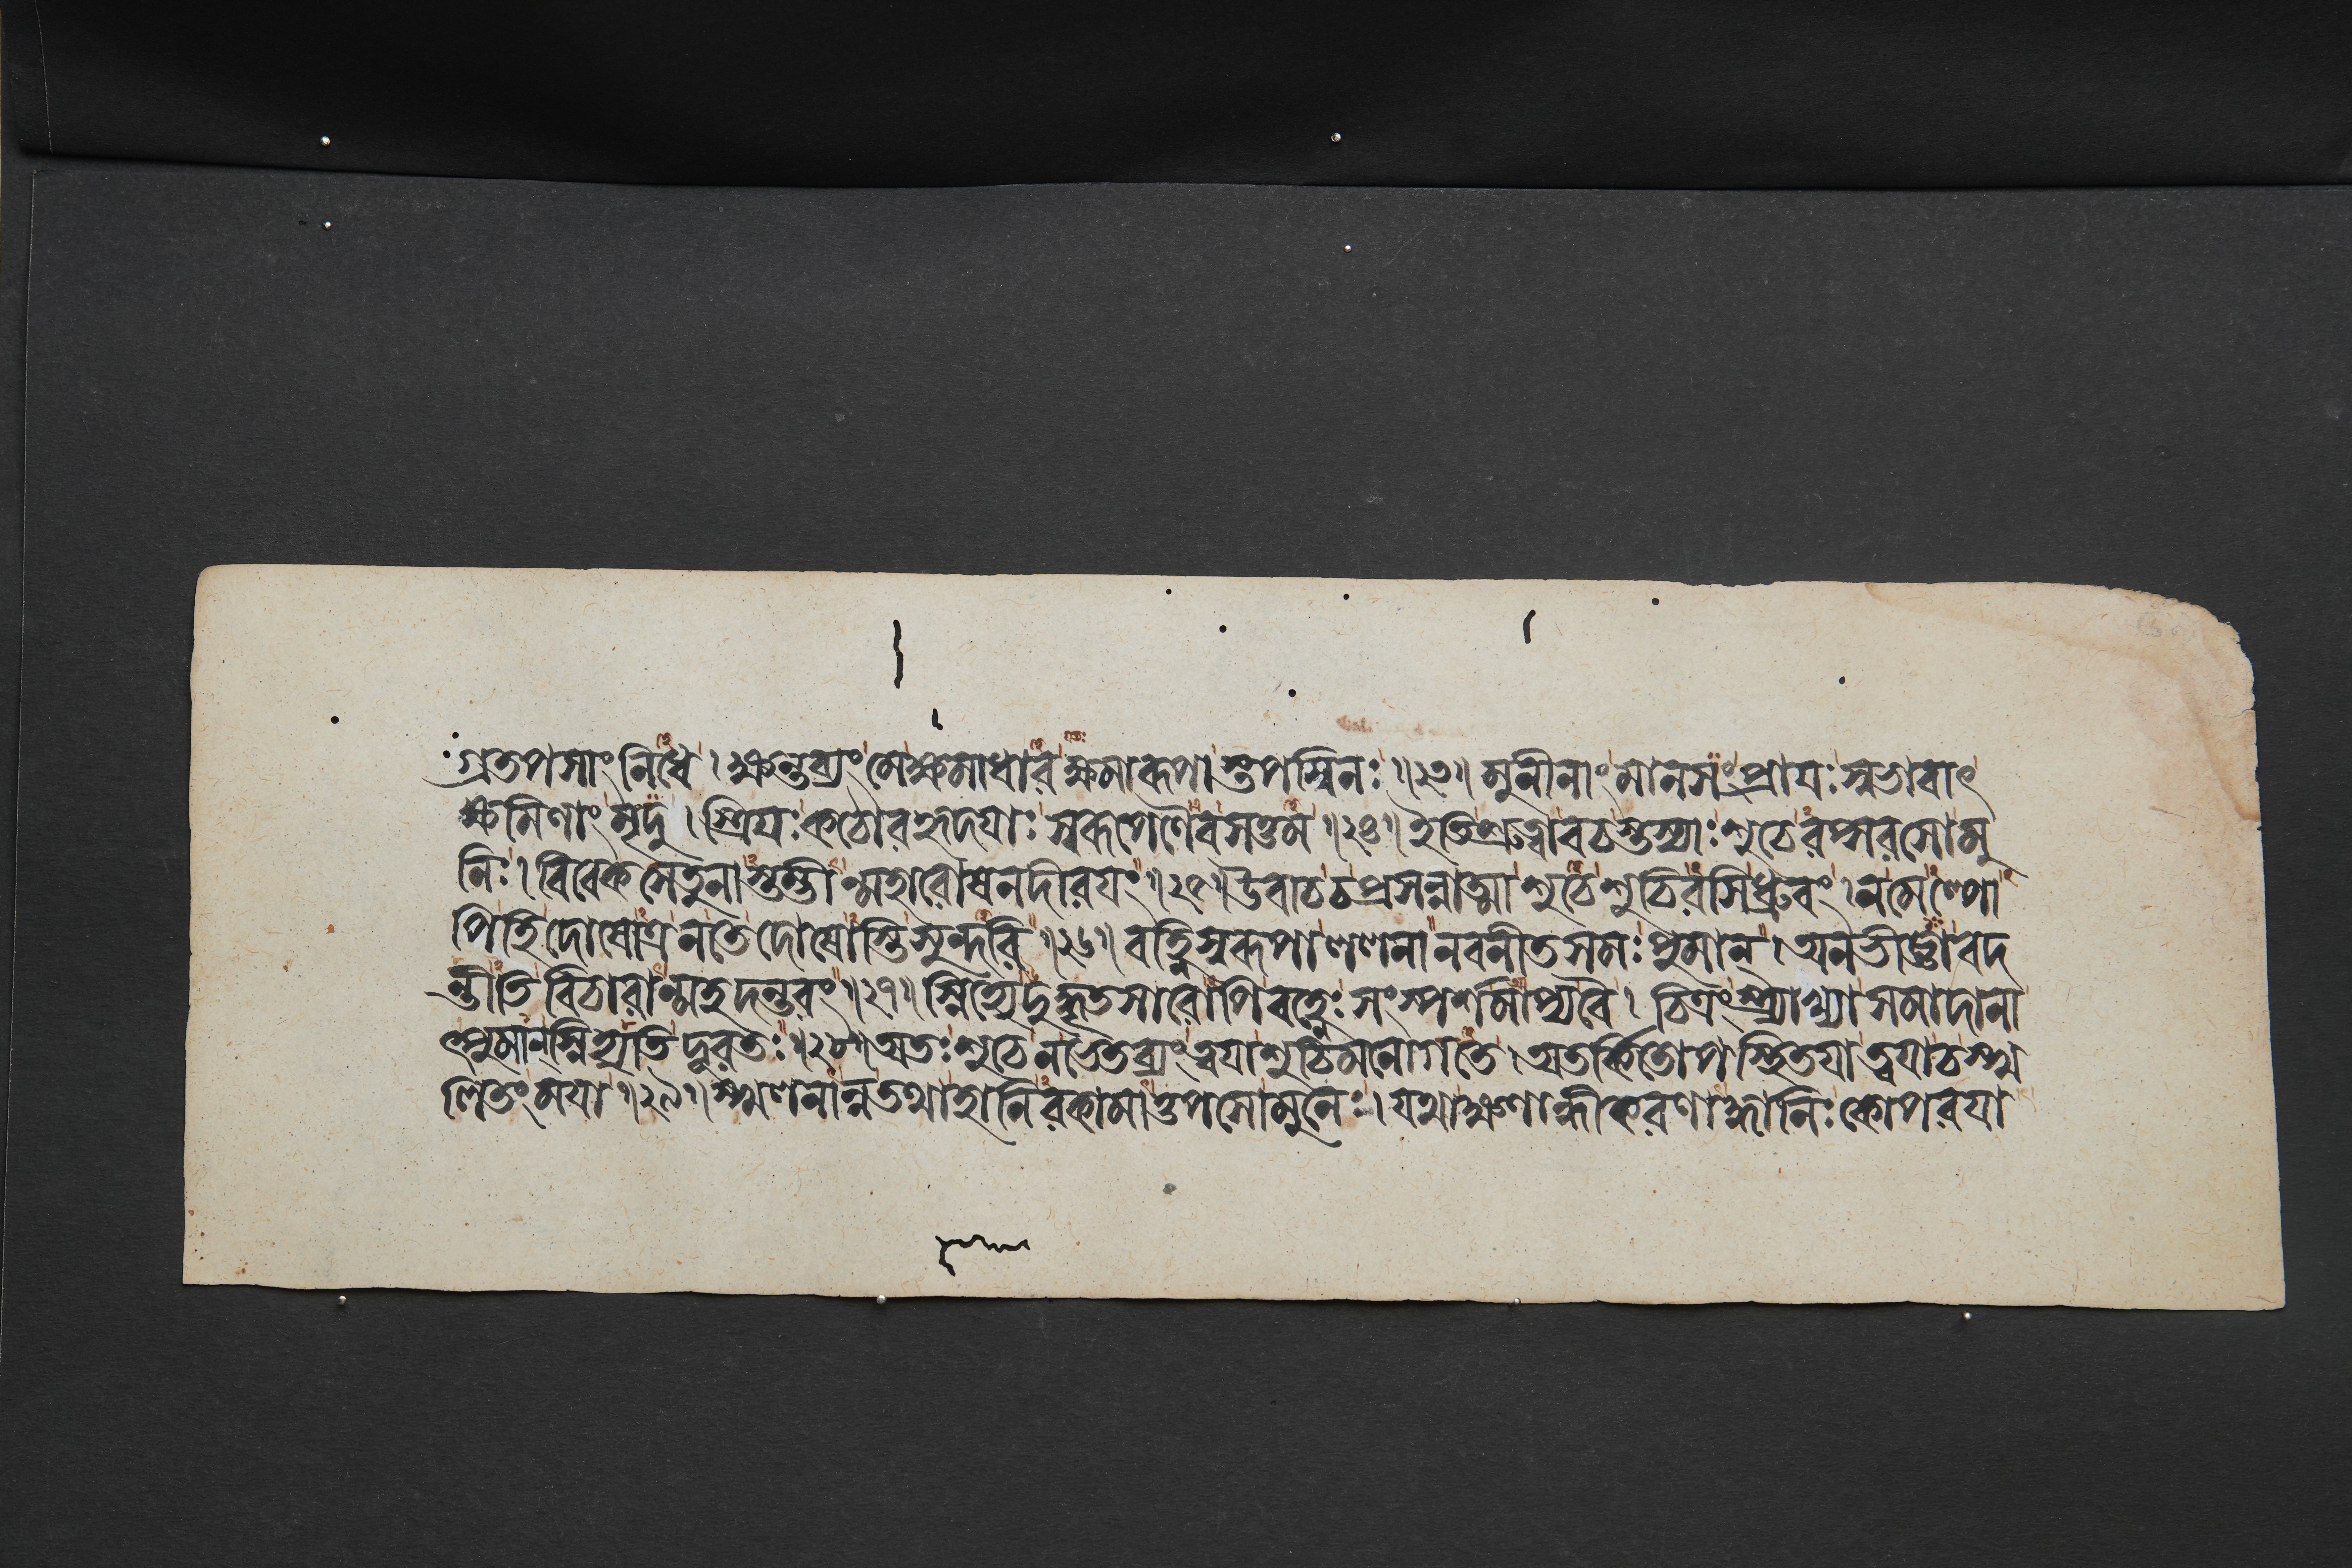 গ্রতপসাং নিধে । ক্ষন্তব্যং মে ক্ষমাধার ক্ষমারূপাস্তপস্বিনঃ ॥২৩॥ মুনীনাং মানসং প্রাযঃ স্বভাবাৎ
ক্ষমিণাং মৃদু । স্ত্রিযঃ কঠোরহৃদযাঃ স্বরূপেণৈব সত্তম ॥২৪॥ ইতি শ্রুত্বা বচস্তস্যাঃ শুচেরপ্সরসো মু
নিঃ । বিবেকসেতুনাস্তম্ভীন্মহারোষনদীরযং ॥২৫॥ উবাচ চ প্রসন্নাত্মা শুচে শুচিরসি ধ্রুবং । ন মেল্পো
পি হি দোষোত্র ন তে দোষোস্তি সুন্দরি ॥২৬॥ বহ্নিস্বরূপা ললনা নবনীতসমঃ পুমান্ । অনভীজ্ঞা বদ
ন্তীতি বিচারান্মহদন্তরং ॥২৭॥ স্নিহ্যেদুদ্ধৃতসারোপি বহ্নেঃ সংস্পর্শমাপ্য বৈ । চিত্রং স্ত্র্যাখ্যাসমাদানা
ৎপুমান্ স্নিহ্যতি দূরতঃ ॥২৮॥ অতঃ শুচে ন ভেতব্যং ত্বযা শুচিমনোগতে । অতর্কিতোপস্থিতযা ত্বযা চ স্খ
লিতং মযা ॥২৯॥ স্খলনান্ন তথা হানিরকামাত্তপসো মুনেঃ । যথা ক্ষণান্ধীকরণাদ্ধানিঃ কোপরযা